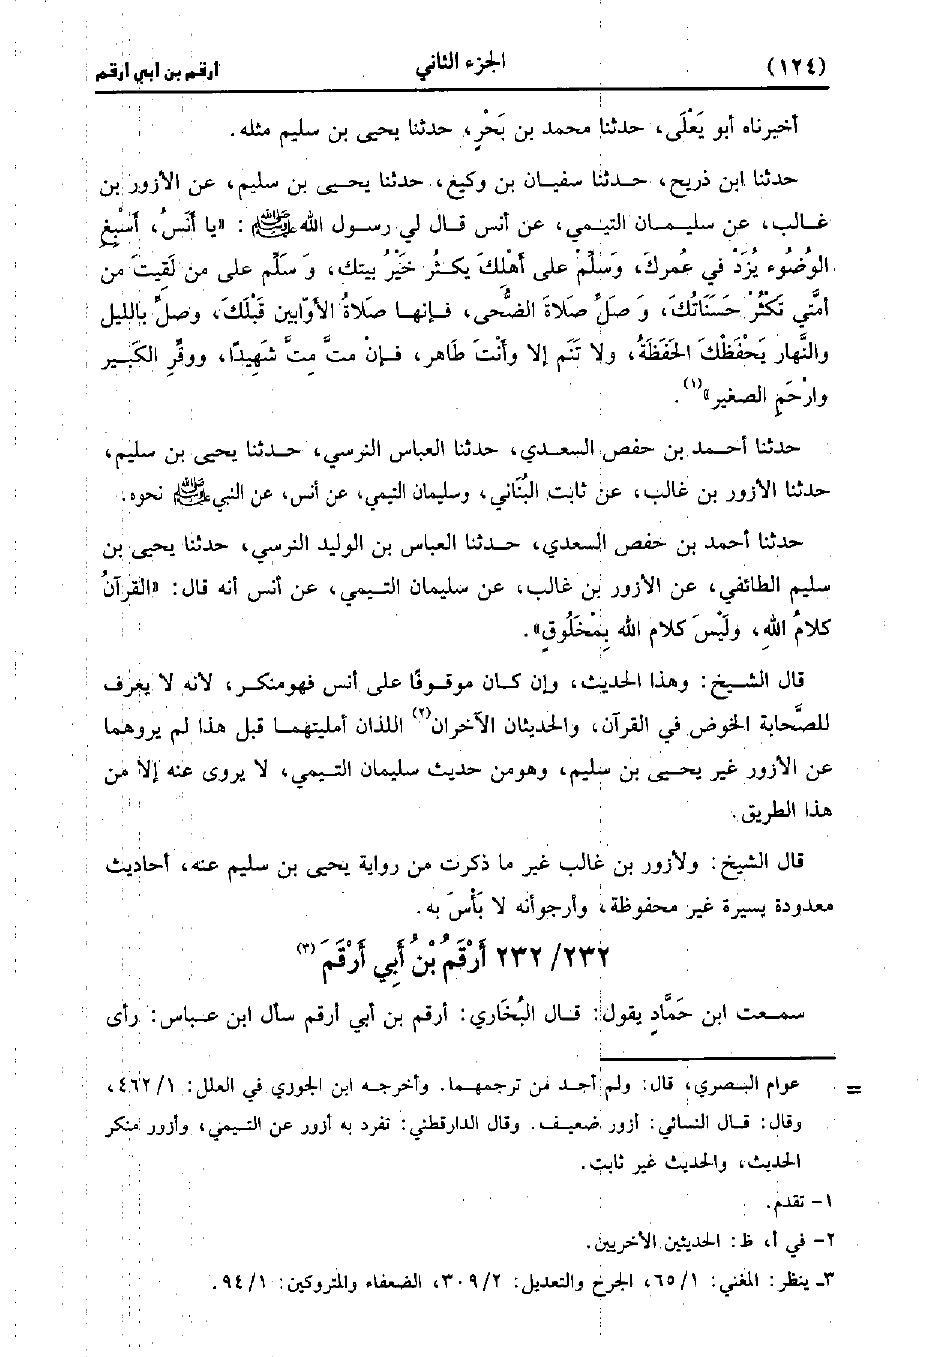 (١٢٤) الجزء الثاني أرقم بن أبي أرقم
أخبرناه أبو يَعْلَى، حدثنا محمد بن بَحْرٍ، حدثنا يحيى بن سليم مثله.
حدثنا ابن ذريح، حدثنا سفيان بن وكيع، حدثنا يحيى بن سليم، عن الأزور بن
غالب، عن سليمان التيمي، عن أنس قال لي رسول الله ﷺ : «يا أنَسُ، أسْبِغِ
الوضُوء يُزَدْ في عمرك، وَسَلِّمْ على أهْلكَ يكثُر خَيْرُ بيتك، وَ سَلِّم على من لَقيتَ من
أمَّتي تَكْثُرْ حَسَنَاتُكَ، وَ صَلِّ صَلاةَ الضُّحى، فإنها صَلاةُ الأوَّابين قَبْلَكَ، وصَلِّ بالليل
والنَّهار يَحْفَظْكَ الحَفَظَةُ، ولا تَنَم إلا وأنْتَ طَاهر، فإنْ متَّ مِتَّ شَهِيدًا، ووقِّرِ الكَبير
وارْحَمِ الصغير»(١).
حدثنا أحمد بن حفص السعدي، حدثنا العباس النرسي، حدثنا يحيى بن سليم،
حدثنا الأزور بن غالب، عن ثابت البُنَاني، وسليمان التيمي، عن أنس، عن النبي ﷺ نحوه.
حدثنا أحمد بن حفص السعدي، حدثنا العباس بن الوليد النرسي، حدثنا يحيى بن
سليم الطائفي، عن الأزور بن غالب، عن سليمان التيمي، عن أنس أنه قال: «القرآنُ
كلامُ اللهِ، ولَيْسَ كلام الله بِمْخَلُوقٍ».
قال الشيخ: وهذا الحديث، وإن كان موقوفًا على أنس فهومنكر، لأنه لا يعرف
للصَّحابة الخوض في القرآن، والحديثان الآخران(٢) اللذان أمليتهما قبل هذا لم يروهما
عن الأزور غير يحيى بن سليم، وهومن حديث سليمان التيمي، لا يروى عنه إلا من
هذا الطريق.
قال الشيخ: ولأزور بن غالب غير ما ذكرت من رواية يحيى بن سليم عنه، أحاديث
معدودة يسيرة غير محفوظة، وأرجوأنه لا بَأْسَ به.
٢٣٢/ ٢٣٢ أَرْقَمُ بْنُ أَبِي أَرْقَمَ(٣)
سمعت ابن حَمَّادٍ يقول: قال البُخَاري: أرقم بن أبي أرقم سأل ابن عباس: رأى
= عوام البصري، قال: ولم أجد من ترجمهما. وأخرجه ابن الجوزي في العلل: ١/ ٤٦٢،
وقال: قال النسائي: أزور ضعيف. وقال الدارقطني: تفرد به أزور عن التيمي، وأزور منكر
الحديث، والحديث غير ثابت.
١- تقدم.
٢- في أ، ظ: الحديثين الأخريين.
٣- ينظر: المغني: ١/ ٦٥، الجرح والتعديل: ٢/ ٣٠٩، الضعفاء والمتروكين: ١/ ٩٤.